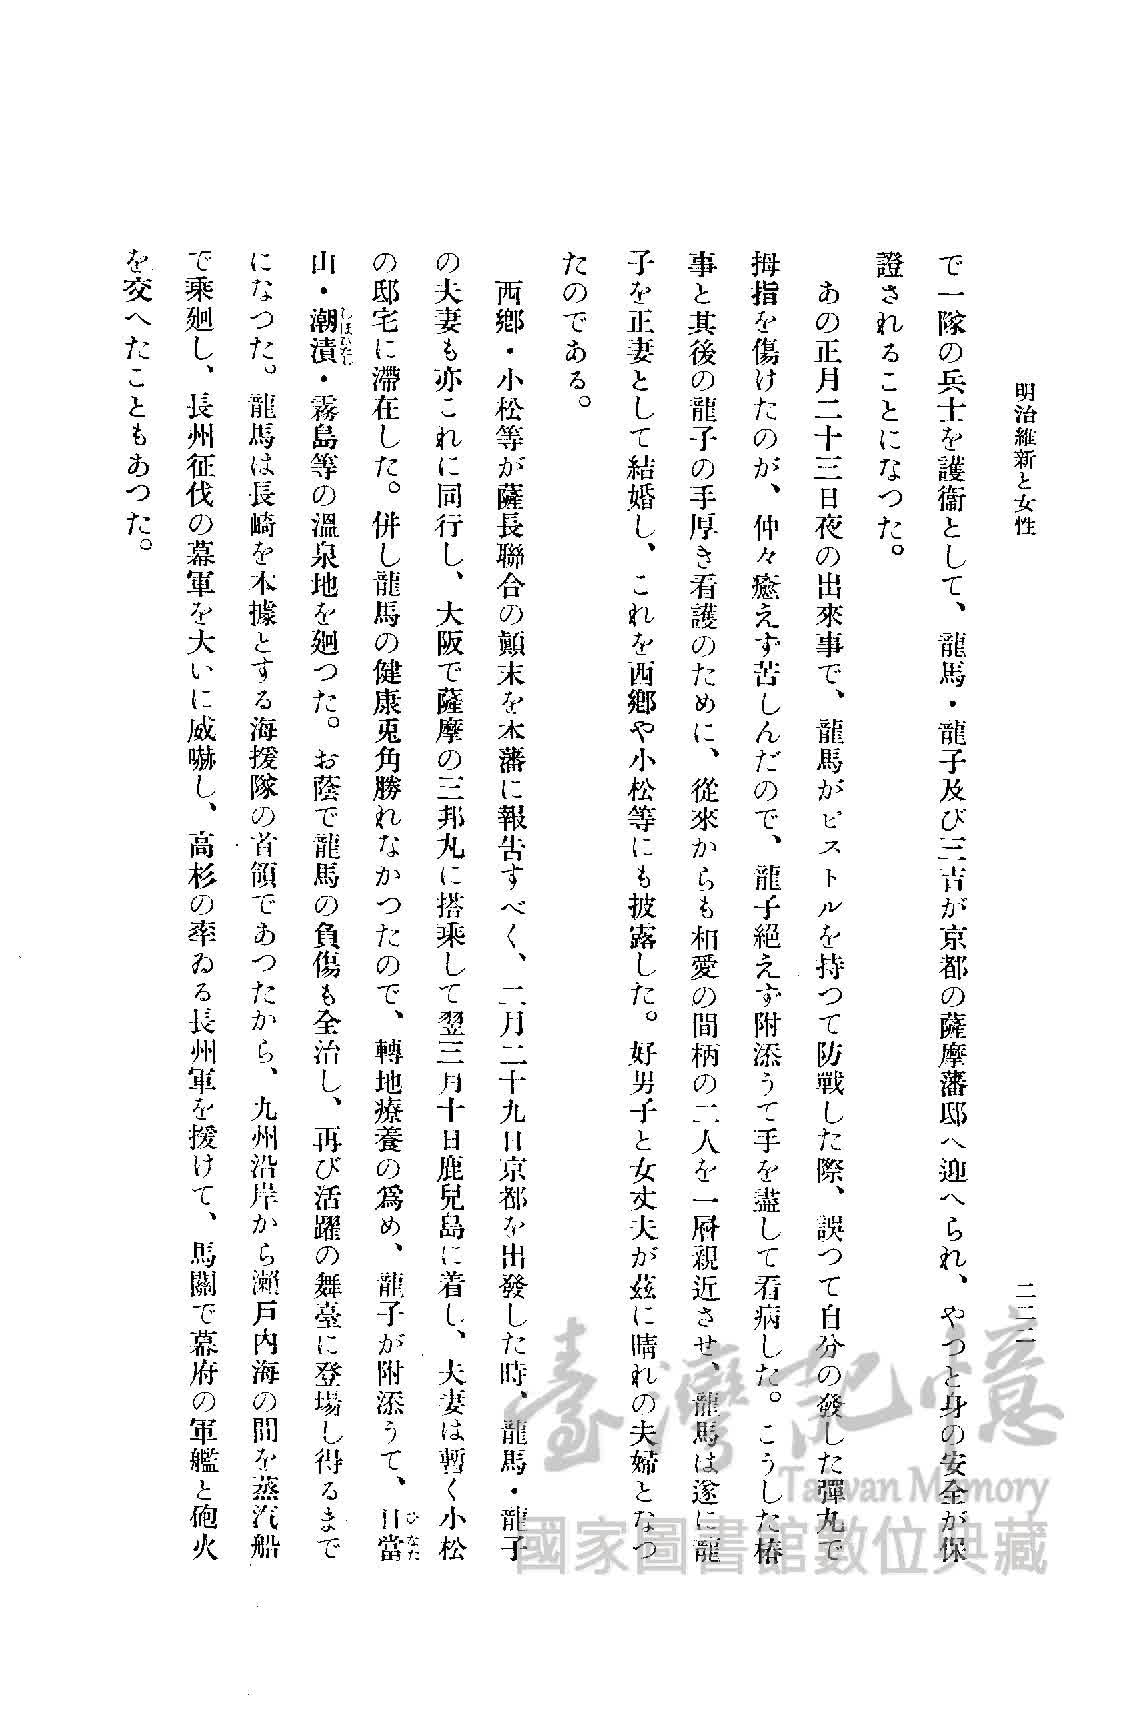 明治維新と女性
二二二
で一隊の兵士を護衞として、龍馬・龍子及び三吉が京都の薩摩藩邸へ迎へられ、やつと身の安全が保
證されることになつた。
あの正月二十三日夜の出來事で、龍馬がピストルを持つて防戰した際、誤つて自分の發した彈丸で
拇指を傷けたのが、仲々癒えず苦しんだので、龍子絕えず附添うて手を盡して看病した。こうした椿
事と其後の龍子の手厚き看護のために、從來からも相愛の間柄の二人を一層親近させ、龍馬は遂に龍
子を正妻として結婚し、これを西鄕や小松等にも披露した。好男子と女丈夫が茲に晴れの夫婦となつ
たのである。
西鄕・小松等が薩長聯合の顚末を本藩に報告すべく、二月二十九日京都を出發した時、龍馬・龍子
の夫妻も亦これに同行し、大阪で薩摩の三邦丸に搭乘して翌三月十日鹿兒島に着し、夫妻は暫く小松
の邸宅に滯在した。併し龍馬の健康兎角勝れなかつたので、轉地療養の爲め、龍子が附添うて、日當
ひなた
山・潮漬・霧島等の溫泉地を廻つた。お蔭で龍馬の負傷も全治し、再び活躍の舞臺に登場し得るまで
しほひたし
になつた。龍馬は長崎を本據とする海援隊の首領であつたから、九州沿岸から瀨戶內海の間を蒸汽船
で乘廻し、長州征伐の幕軍を大いに威嚇し、高杉の率ゐる長州軍を援けて、馬關で幕府の軍艦と砲火
を交へたこともあつた。
臺灣記憶
Taiwan Memory
國家圖書館數位典藏